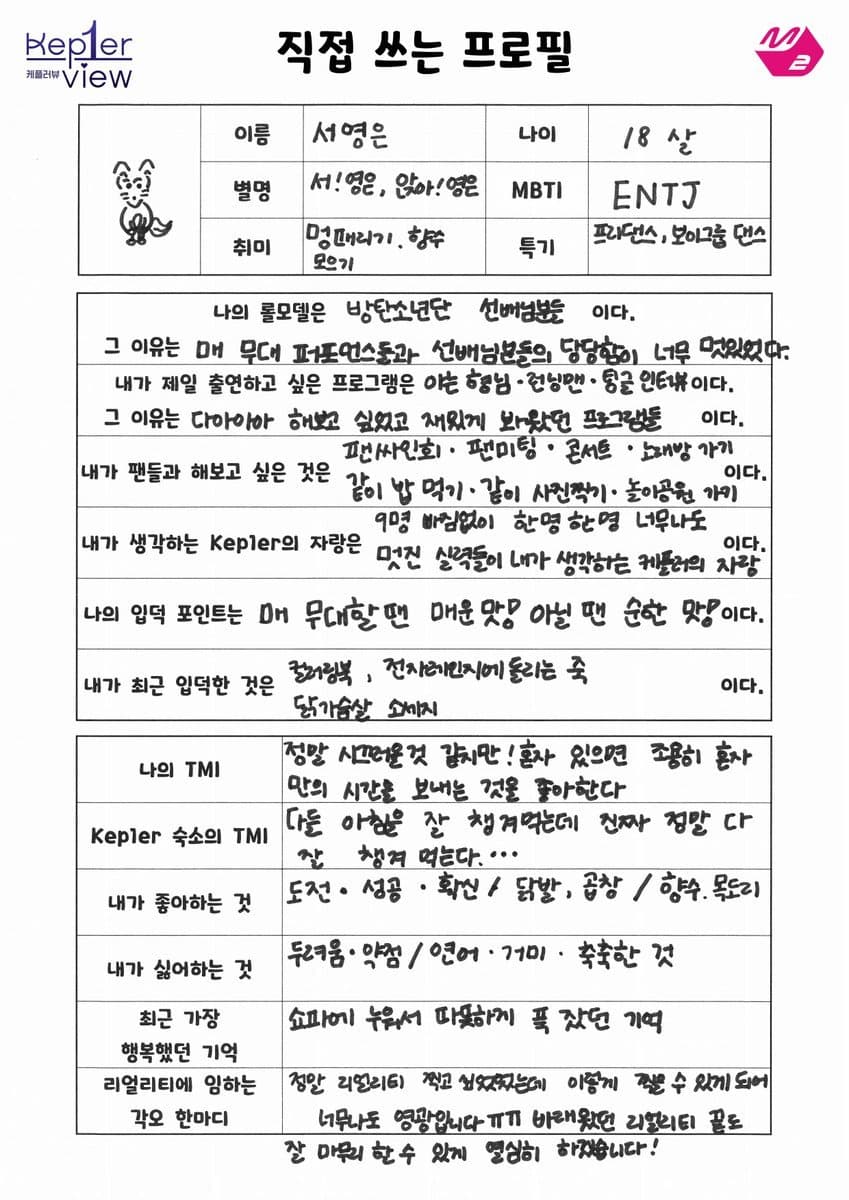 Kep1er
케플러뷰 view
직접 쓰는 프로필
M2
이름 서영은 나이 18 살
별명 서!영은, 앉아!영은 MBTI ENTJ
취미 멍때리기. 향수 모으기 특기 프리댄스, 보이그룹 댄스
나의 롤모델은 방탄소년단 선배님분들 이다.
그 이유는 매 무대 퍼포먼스들과 선배님분들의 당당함이 너무 멋있었다.
내가 제일 출연하고 싶은 프로그램은 아는 형님·런닝맨·퉁글 인터뷰이다.
그 이유는 다아아아 해보고 싶었고 재밌게 봐왔던 프로그램들 이다.
내가 팬들과 해보고 싶은 것은 팬싸인회· 팬미팅· 콘서트 · 노래방 가기
같이 밥 먹기·같이 사진찍기·놀이공원 가기 이다.
내가 생각하는 Kep1er의 자랑은 9명 빠짐없이 한명한명 너무나도
멋진 실력들이 내가 생각하는 케플러의 자랑 이다.
나의 입덕 포인트는 매 무대할땐 매운맛! 아닐 땐 순한 맛!이다.
내가 최근 입덕한 것은 컬러링북, 전자레인지에 돌리는 죽
닭가슴살 소세지 이다.
나의 TMI 정말 시끄러울것 같지만! 혼자 있으면 조용히 혼자
만의 시간을 보내는 것을 좋아한다
Kep1er 숙소의 TMI 다들 아침을 잘 챙겨먹는데 진짜 정말 다
잘 챙겨 먹는다. ···
내가 좋아하는 것 도전· 성공 · 확신 / 닭발, 곱창 / 향수. 목도리
내가 싫어하는 것 두려움·약점 / 연어·거미· 축축한 것
최근 가장
행복했던 기억 쇼파에 누워서 따뜻하게 푹 잤던 기억
리얼리티에 임하는 정말 리얼리티 찍고 싶었었는데 이렇게 찍을 수 있게 되어
각오 한마디 너무나도 영광입니다ㅠㅠ 바래왔던 리얼리티 끝도
잘 마무리 할 수 있게 열심히 하겠습니다!